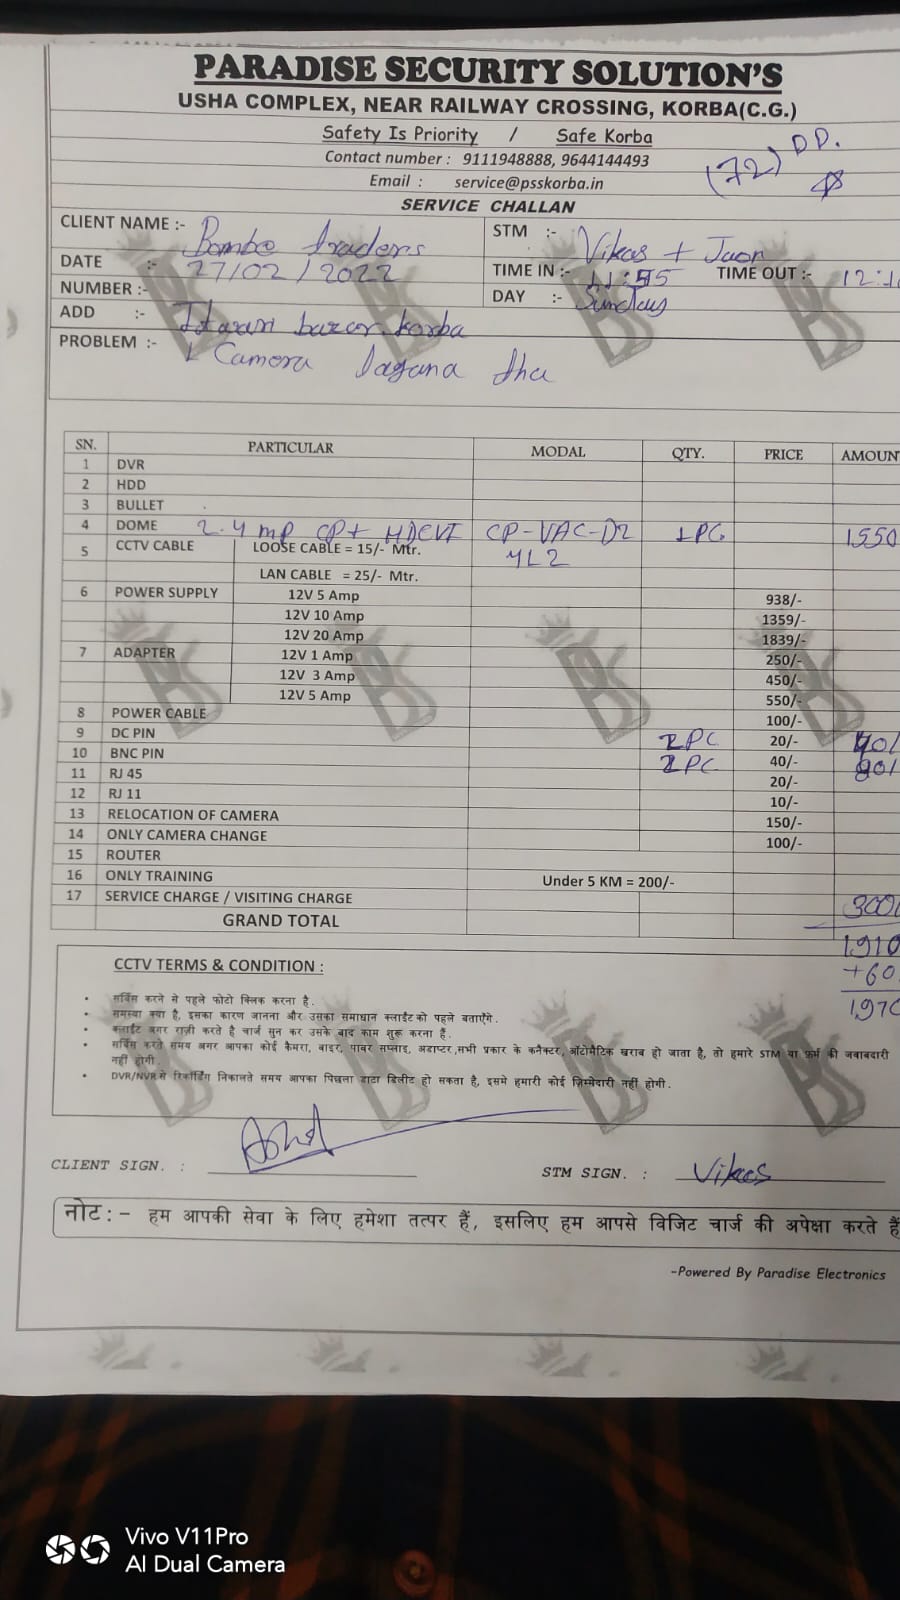 PARADISE SECURITY SOLUTION'S
USHA COMPLEX, NEAR RAILWAY CROSSING, KORBA(C.G.)
Safety Is Priority / Safe Korba
Contact number : 9111948888, 9644144493
Email : service@psskorba.in
(72) DD.
SERVICE CHALLAN
CLIENT NAME :- Bombe traders
STM :- Vikas +
DATE :- 27/02/2022
TIME IN :- 11:55 TIME OUT :- 12:1
NUMBER :-
DAY :- Sunday
ADD :- Itwari bazar korba
PROBLEM :- 1 Camera lagana tha
SN. PARTICULAR MODAL QTY. PRICE AMOUN
1 DVR
2 HDD
3 BULLET
4 DOME 2.4 mp CP+ HDCVI CP-VAC-D2 1PC 1550
4L2
5 CCTV CABLE LOOSE CABLE = 15/- Mtr.
LAN CABLE = 25/- Mtr.
6 POWER SUPPLY 12V 5 Amp 938/-
12V 10 Amp 1359/-
12V 20 Amp 1839/-
7 ADAPTER 12V 1 Amp 250/-
12V 3 Amp 450/-
12V 5 Amp 550/-
8 POWER CABLE 100/-
9 DC PIN PC 20/-
10 BNC PIN PC 40/-
11 RJ 45 20/-
12 RJ 11 10/-
13 RELOCATION OF CAMERA 150/-
14 ONLY CAMERA CHANGE 100/-
15 ROUTER
16 ONLY TRAINING Under 5 KM = 200/-
17 SERVICE CHARGE / VISITING CHARGE 300
GRAND TOTAL
1910
+60
1970
CCTV TERMS & CONDITION :
• सर्विस करने से पहले फोटो क्लिक करना है.
• समस्या क्या है, इसका कारण जानना और उसका समाधान क्लाईंट को पहले बताएँगे.
• क्लाईंट अगर राज़ी करते है चार्ज सुन कर उसके बाद काम शुरू करना हैं.
• सर्विस करते समय अगर आपका कोई कैमरा, वाइर, पावर सप्लाइ, अडाप्टर,सभी प्रकार के कनैक्टर, ऑटोमैटिक खराब हो जाता है, तो हमारे STM या फ़र्म की जवाबदारी
नहीं होगी.
• DVR/NVR से रिकॉर्डिंग निकालते समय आपका पिछला डाटा डिलीट हो सकता है, इसमे हमारी कोई ज़िम्मेदारी नहीं होगी.
CLIENT SIGN. :
STM SIGN. : Vikas
नोट:- हम आपकी सेवा के लिए हमेशा तत्पर हैं, इसलिए हम आपसे विजिट चार्ज की अपेक्षा करते हैं
-Powered By Paradise Electronics
Vivo V11Pro
AI Dual Camera